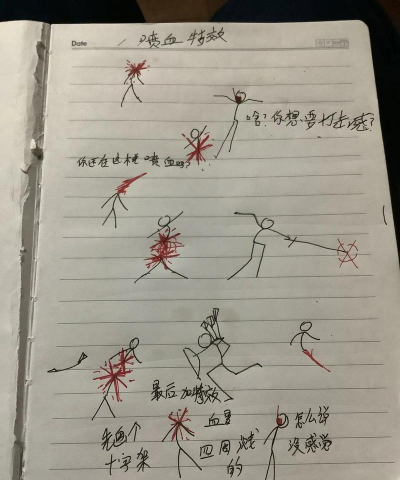 Date 喷血特效
啥?你想要打击感?
你还在这样喷血吗?
最后加特效
先画个
十字架
血是
四周溅
的
怎么说
没感觉